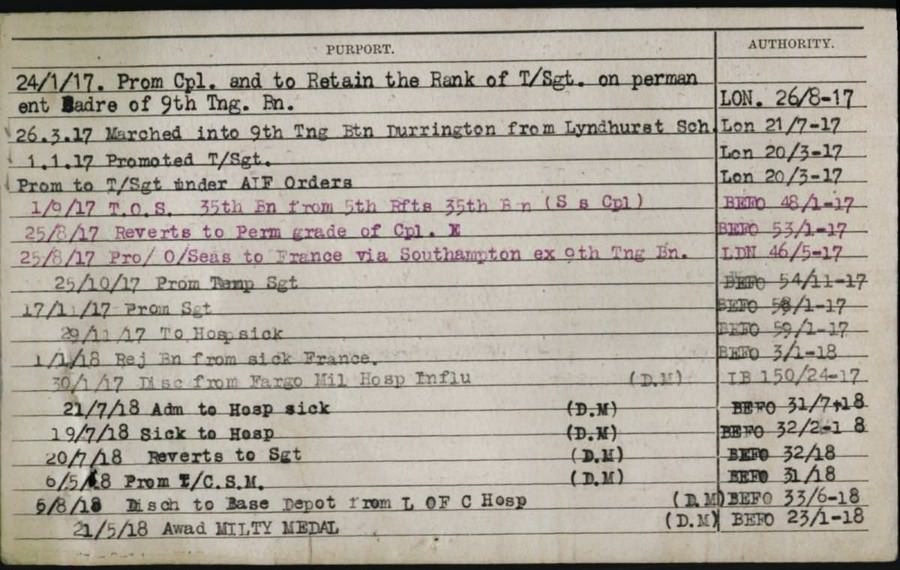 PURPORT. AUTHORITY.
24/1/17. Prom Cpl. and to Retain the Rank of T/Sgt. on perman
ent Badre of 9th Tng. Bn. LON. 26/8-17
26.3.17 Marched into 9th Tng Btn Durrington from Lyndhurst Sch. Lon 21/7-17
1.1.17 Promoted T/Sgt. Lon 20/3-17
Prom to T/Sgt under AIF Orders Lon 20/3-17
1/9/17 T.O.S. 35th Bn from 5th Rfts 35th Bn (S s Cpl) BEFO 48/1-17
25/8/17 Reverts to Perm grade of Cpl. BEFO 53/1-17
25/8/17 Pro/ O/Seas to France via Southampton ex 9th Tng Bn. LDN 46/5-17
25/10/17 Prom Temp Sgt BEFO 54/11-17
17/11/17 Prom Sgt BEFO 58/1-17
29/11/17 To Hosp sick BEFO 59/1-17
1/1/18 Rej Bn from sick France. BEFO 3/1-18
30/1/17 Disc from Fargo Mil Hosp Influ (D.M) IB 150/24-17
21/7/18 Adm to Hosp sick (D.M) BEFO 31/7-18
19/7/18 Sick to Hosp (D.M) BEFO 32/2-1 8
20/7/18 Reverts to Sgt (D.M) BEFO 32/18
6/5/18 Prom T/C.S.M. (D.M) BEFO 31/18
5/8/18 Disch to Base Depot from L OF C Hosp (D.M) BEFO 33/6-18
21/5/18 Awad MILTY MEDAL (D.M) BEFO 23/1-18